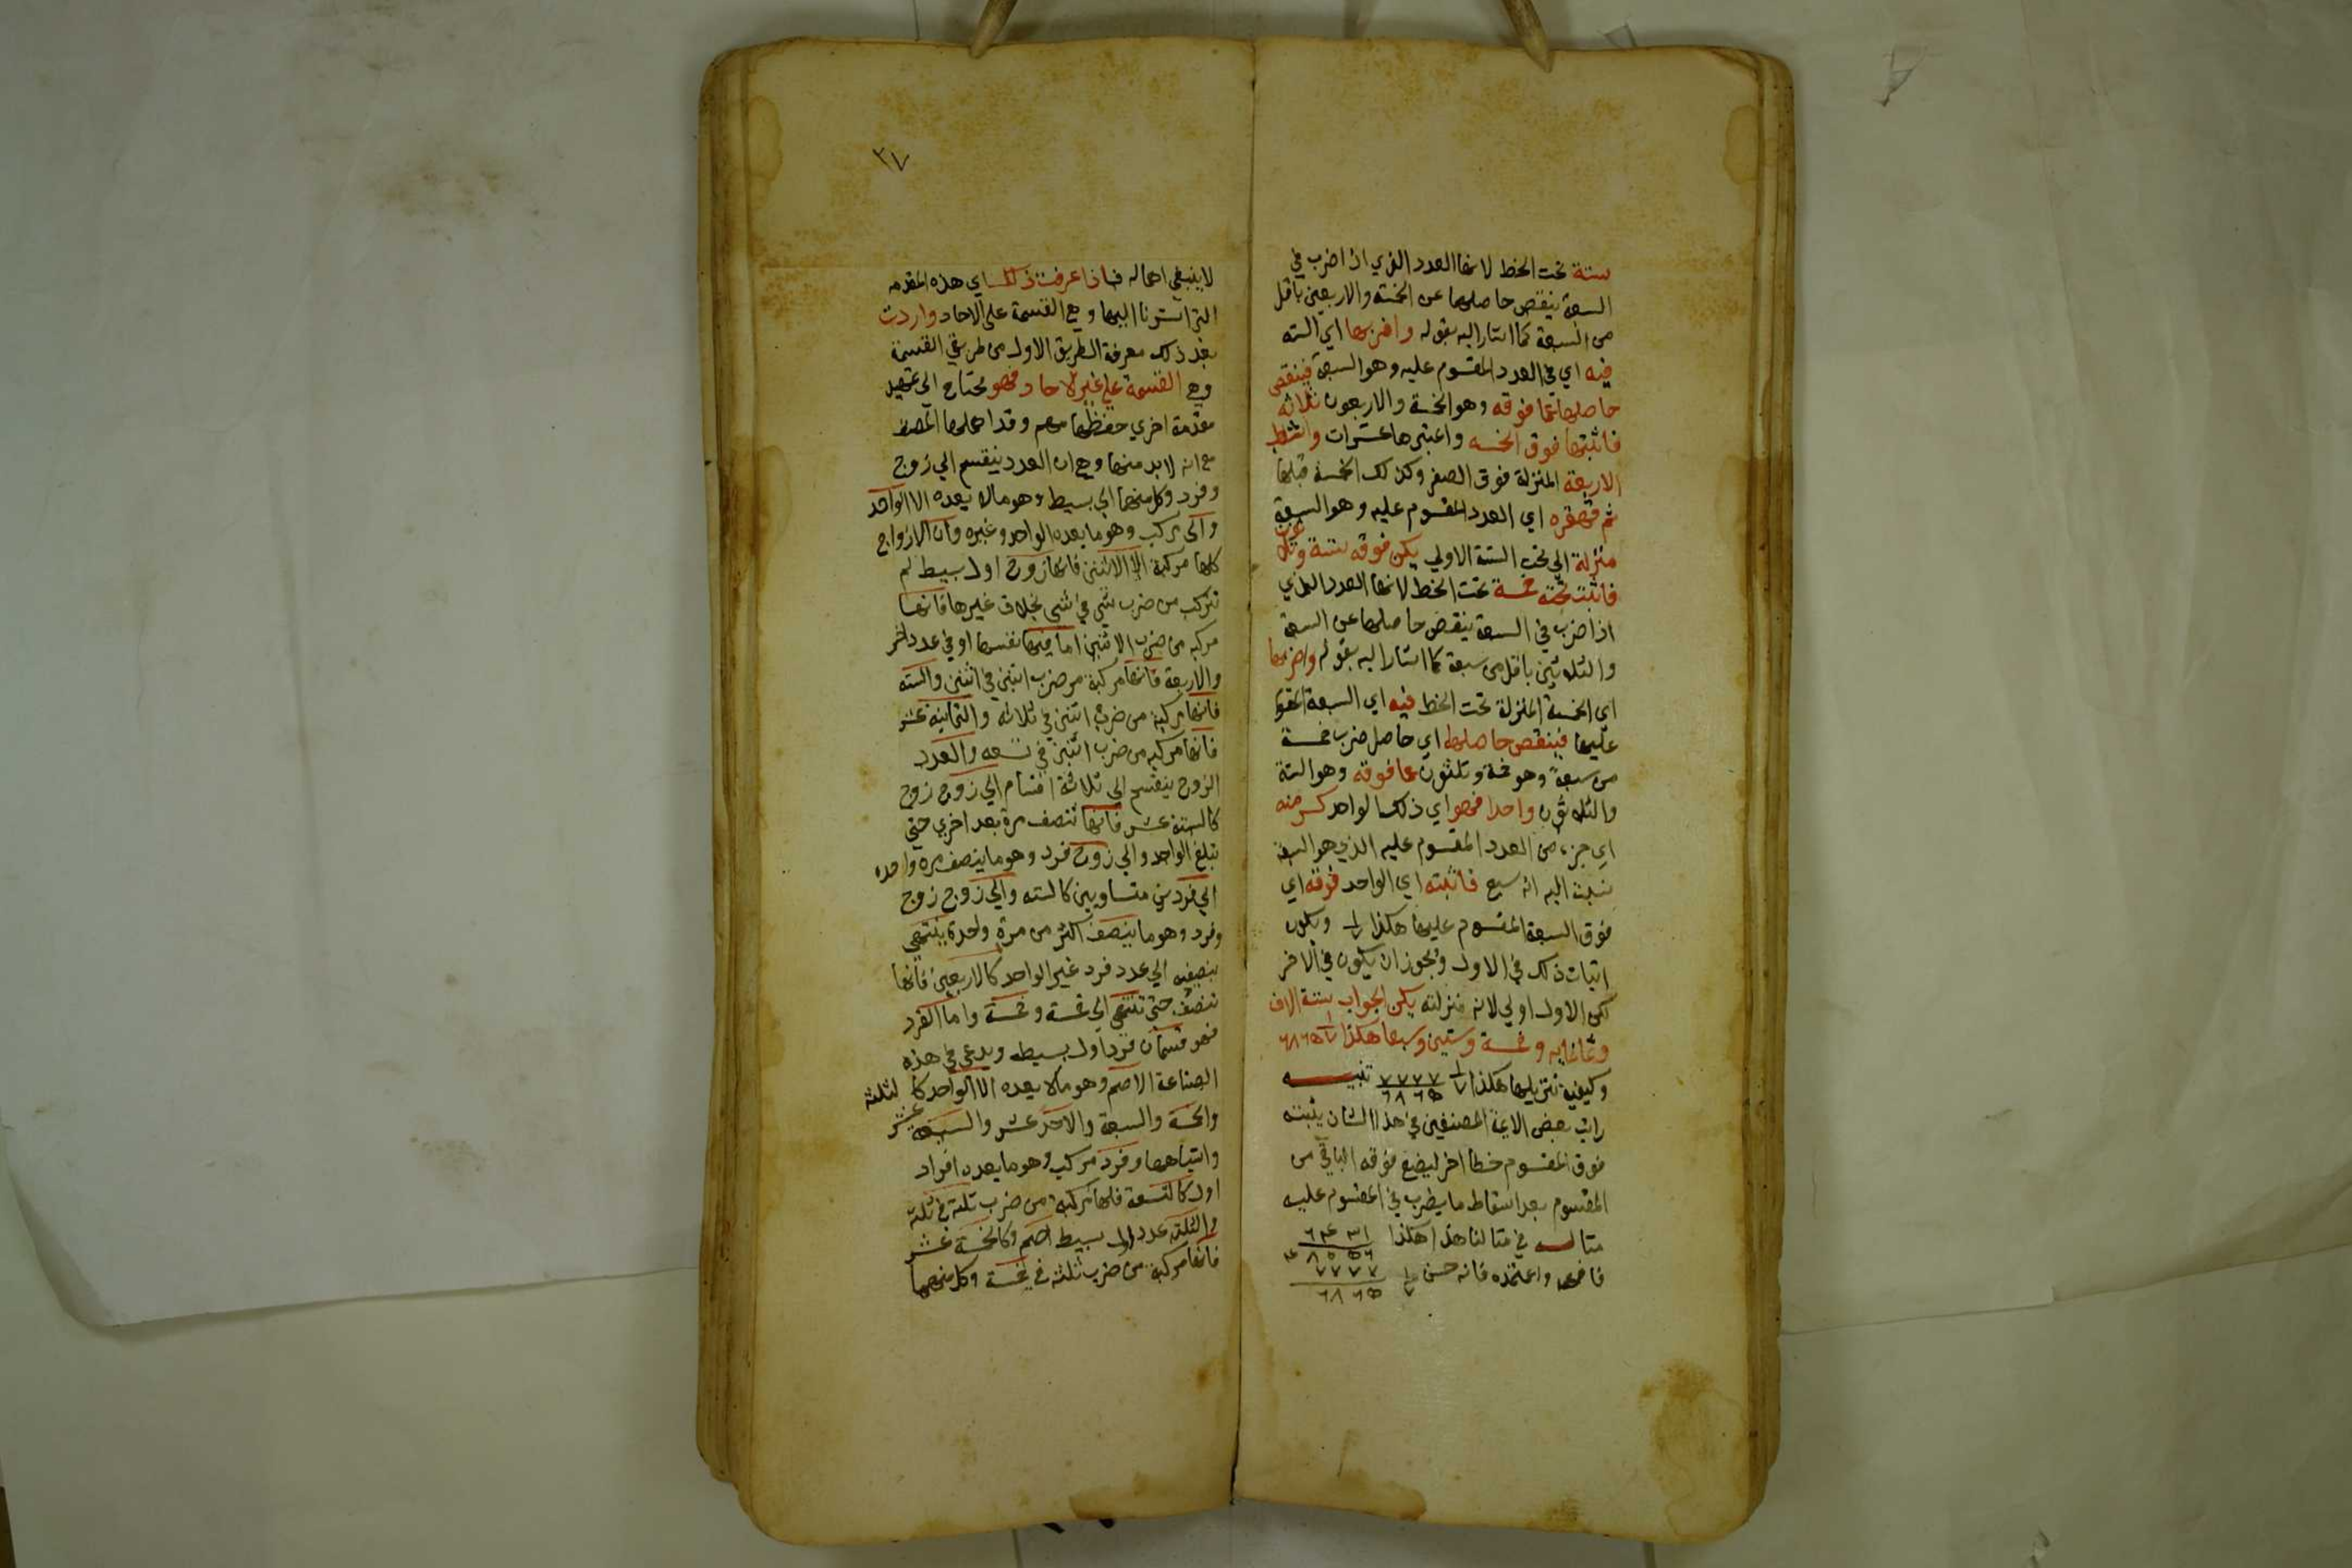 ستة تحت الخط لانها العدد الذي اذا ضرب في
السبعة ينقص حاصلها عن الخمسة والاربعين باقل
من السبعة كما اشار اليه بقوله واضربها اي الستة
فيه اي في العدد المقسوم عليه وهو السبعة فينقص
حاصلها عما فوقه وهو الخمسة والاربعون ثلاثه
فاثبتها فوق الخمسه واعتبرها عشرات واسقط
الاربعة المنزلة فوق الصفر وكذلك الخمسة قبلها
ثم قهقره اي العدد المقسوم عليه وهو السبعة
منزلة الي تحت الستة الاولي يكن فوقه ستة وثلاثون
فاثبت تحته خمسة تحت الخط لانها العدد الذي
اذا ضرب في السبعة ينقص حاصلها عن الستة
والثلاثين باقل من سبعة كما اشار اليه بقوله واضربها
اي الخمسة المنزلة تحت الخط فيه اي السبعة المقسوم
عليها فينقص حاصلها اي حاصل ضرب خمسة
من سبعة وهو خمسة وثلثون عما فوقه وهو الستة
والثلاثون واحدا فهو اي ذلك الواحد كسر منه
اي جزء من العدد المقسوم عليه الذي هو السبعة
نسبته اليه انه سبع فاثبته اي الواحد فوقه اي
فوق السبعة المقسوم عليها هكذا ١/٧ ويكون
اثبات ذلك في الاول ويجوز ان يكون في الاخر
لكن الاول اولي لانه منزلته يكن الجواب ستة الاف
وثمانمايه وخمسة وستين وسبعا هكذا ١/٧ ٦٨٦٥
وكيفية تنزيلها هكذا ١/٧ ٧٧٧٧ تنبيــه
٦٨٦٥
رايت بعض الايمة المصنفين في هذا الشان يثبته
فوق المقسوم خطا اخر ليضع فوقه الباقي من
المقسوم بعد اسقاط ما يضرب في المقسوم عليه
مثاله في مثالنا هذا هكذا ٦٤٣١
٤٨٠٥٦
فافهم واعتمده فانه حسن ١/٧ ٧٧٧٧
٦٨٦٥
٢٧
لا ينبغي اهماله فاذا عرفت ذلك اي هذه المقدمه
التي اشرنا اليها وهي القسمة على الاحاد واردت
بعد ذلك معرفة الطريق الاول من طريقي القسمة
وهي القسمة علي غير الاحاد فهو محتاج الي تمهيد
مقدمة اخري حفظها مهم وقد اهملها المصنف
مع انه لا بد منها وهي ان العدد ينقسم الي زوج
وفرد وكل منهما الي بسيط وهو مالا يعده الا الواحد
والي مركب وهو ما يعده الواحد وغيره وان الازواج
كلها مركبة الا الاثنين فانها زوج اول بسيط لم
تتركب من ضرب شي في شي بخلاف غيرها فانها
مركبه من ضرب الاثنين اما فيها نفسها او في عدد اخر
والاربعة فانها مركبة من ضرب اثنين في اثنين والسته
فانها مركبة من ضرب اثنين في ثلاثة والثمانية عشر
فانها مركبه من ضرب اثنين في تسعه والعدد
الزوج ينقسم الي ثلاثة اقسام الي زوج زوج
كالستة عشر فانها تنصف مرة بعد اخري حتي
تبلغ الواحد والي زوج فرد وهو ما ينصف مره واحده
الي فردين متساويين كالسته والي زوج زوج
وفرد وهو ما ينصف اكثر من مرة واحدة ينتهي
تنصيفه الي عدد فرد غير الواحد كالاربعين فانها
تنصف حتي تنتهي الي خمسة وخمسة واما الفرد
فهو قسمان فرد اول بسيط ويدعي في هذه
الصناعة الاصم وهو مالا يعده الا الواحد كالثلثة
والخمسة والسبعة والاحد عشر والسبعه عشر
واشباهها وفرد مركب وهو ما يعده افراد
اول كالتسعة فانها مركبة من ضرب ثلثة في ثلثة
والثلثة عدد اول بسيط اصم وكالخمسة عشر
فانها مركبة من ضرب ثلثة في خمسة وكل منهما